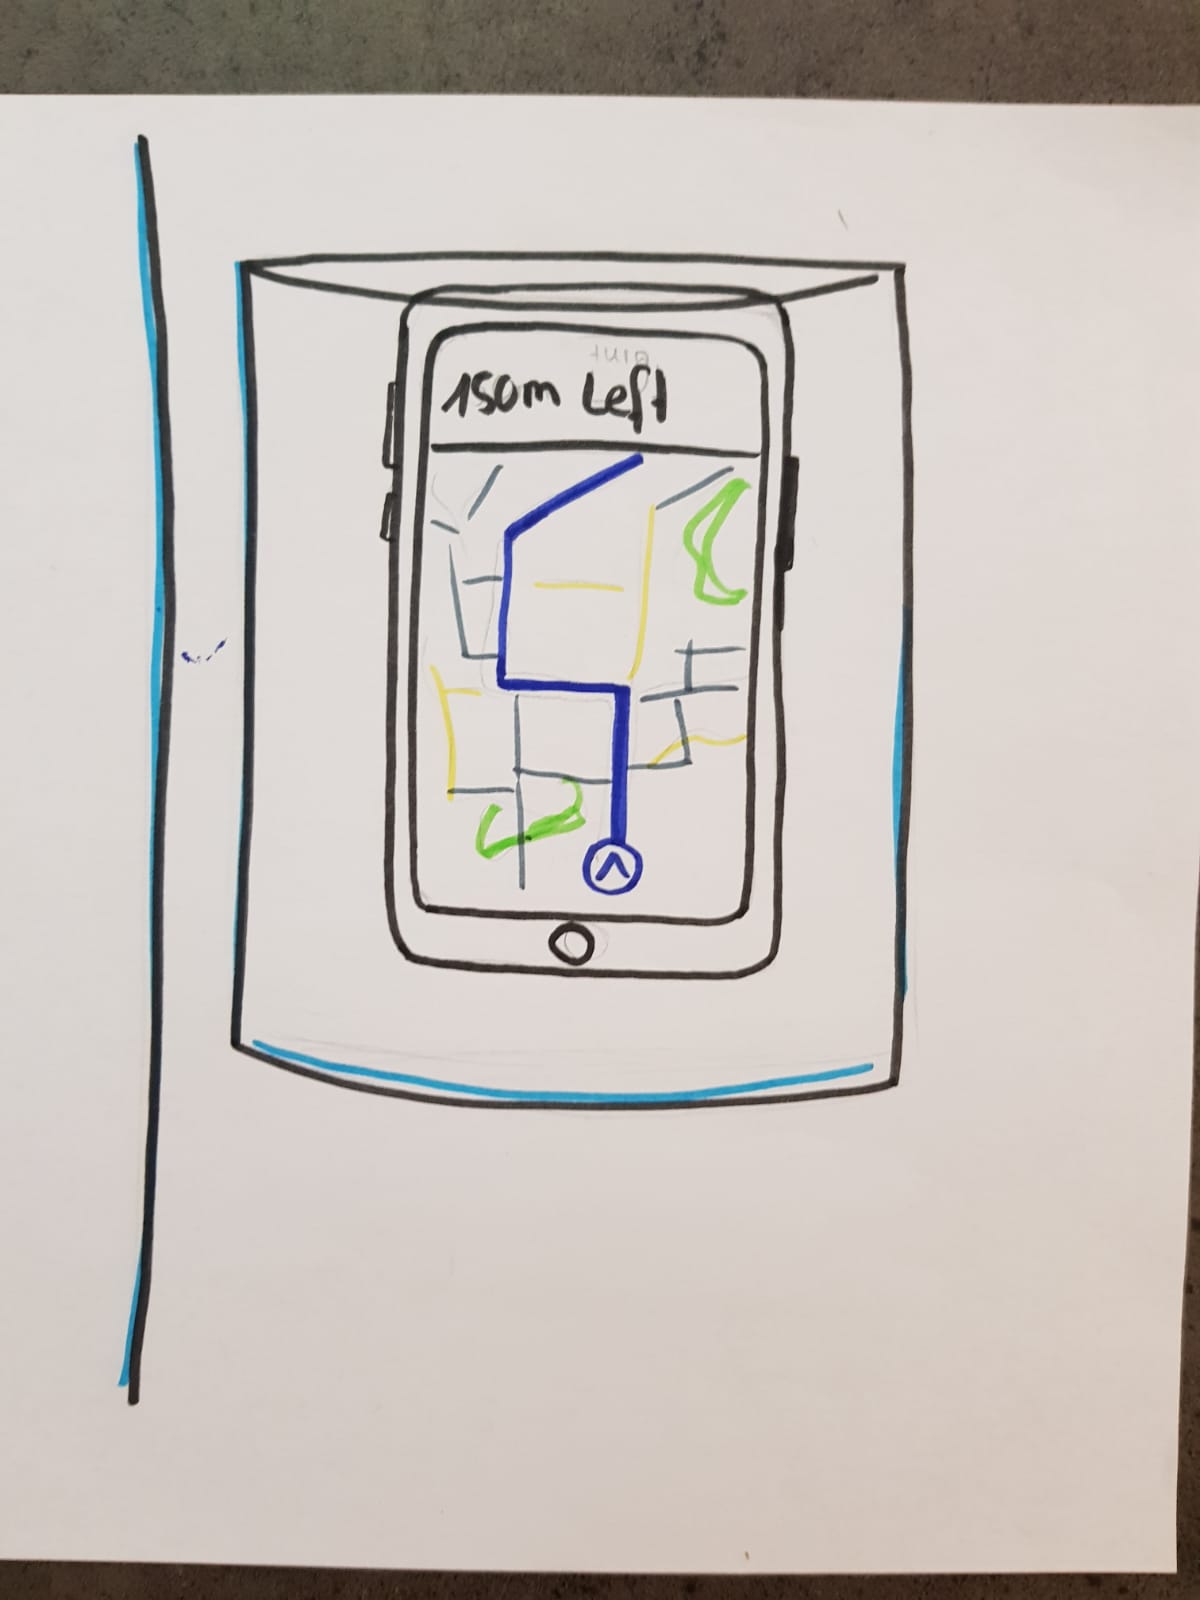 150m Left